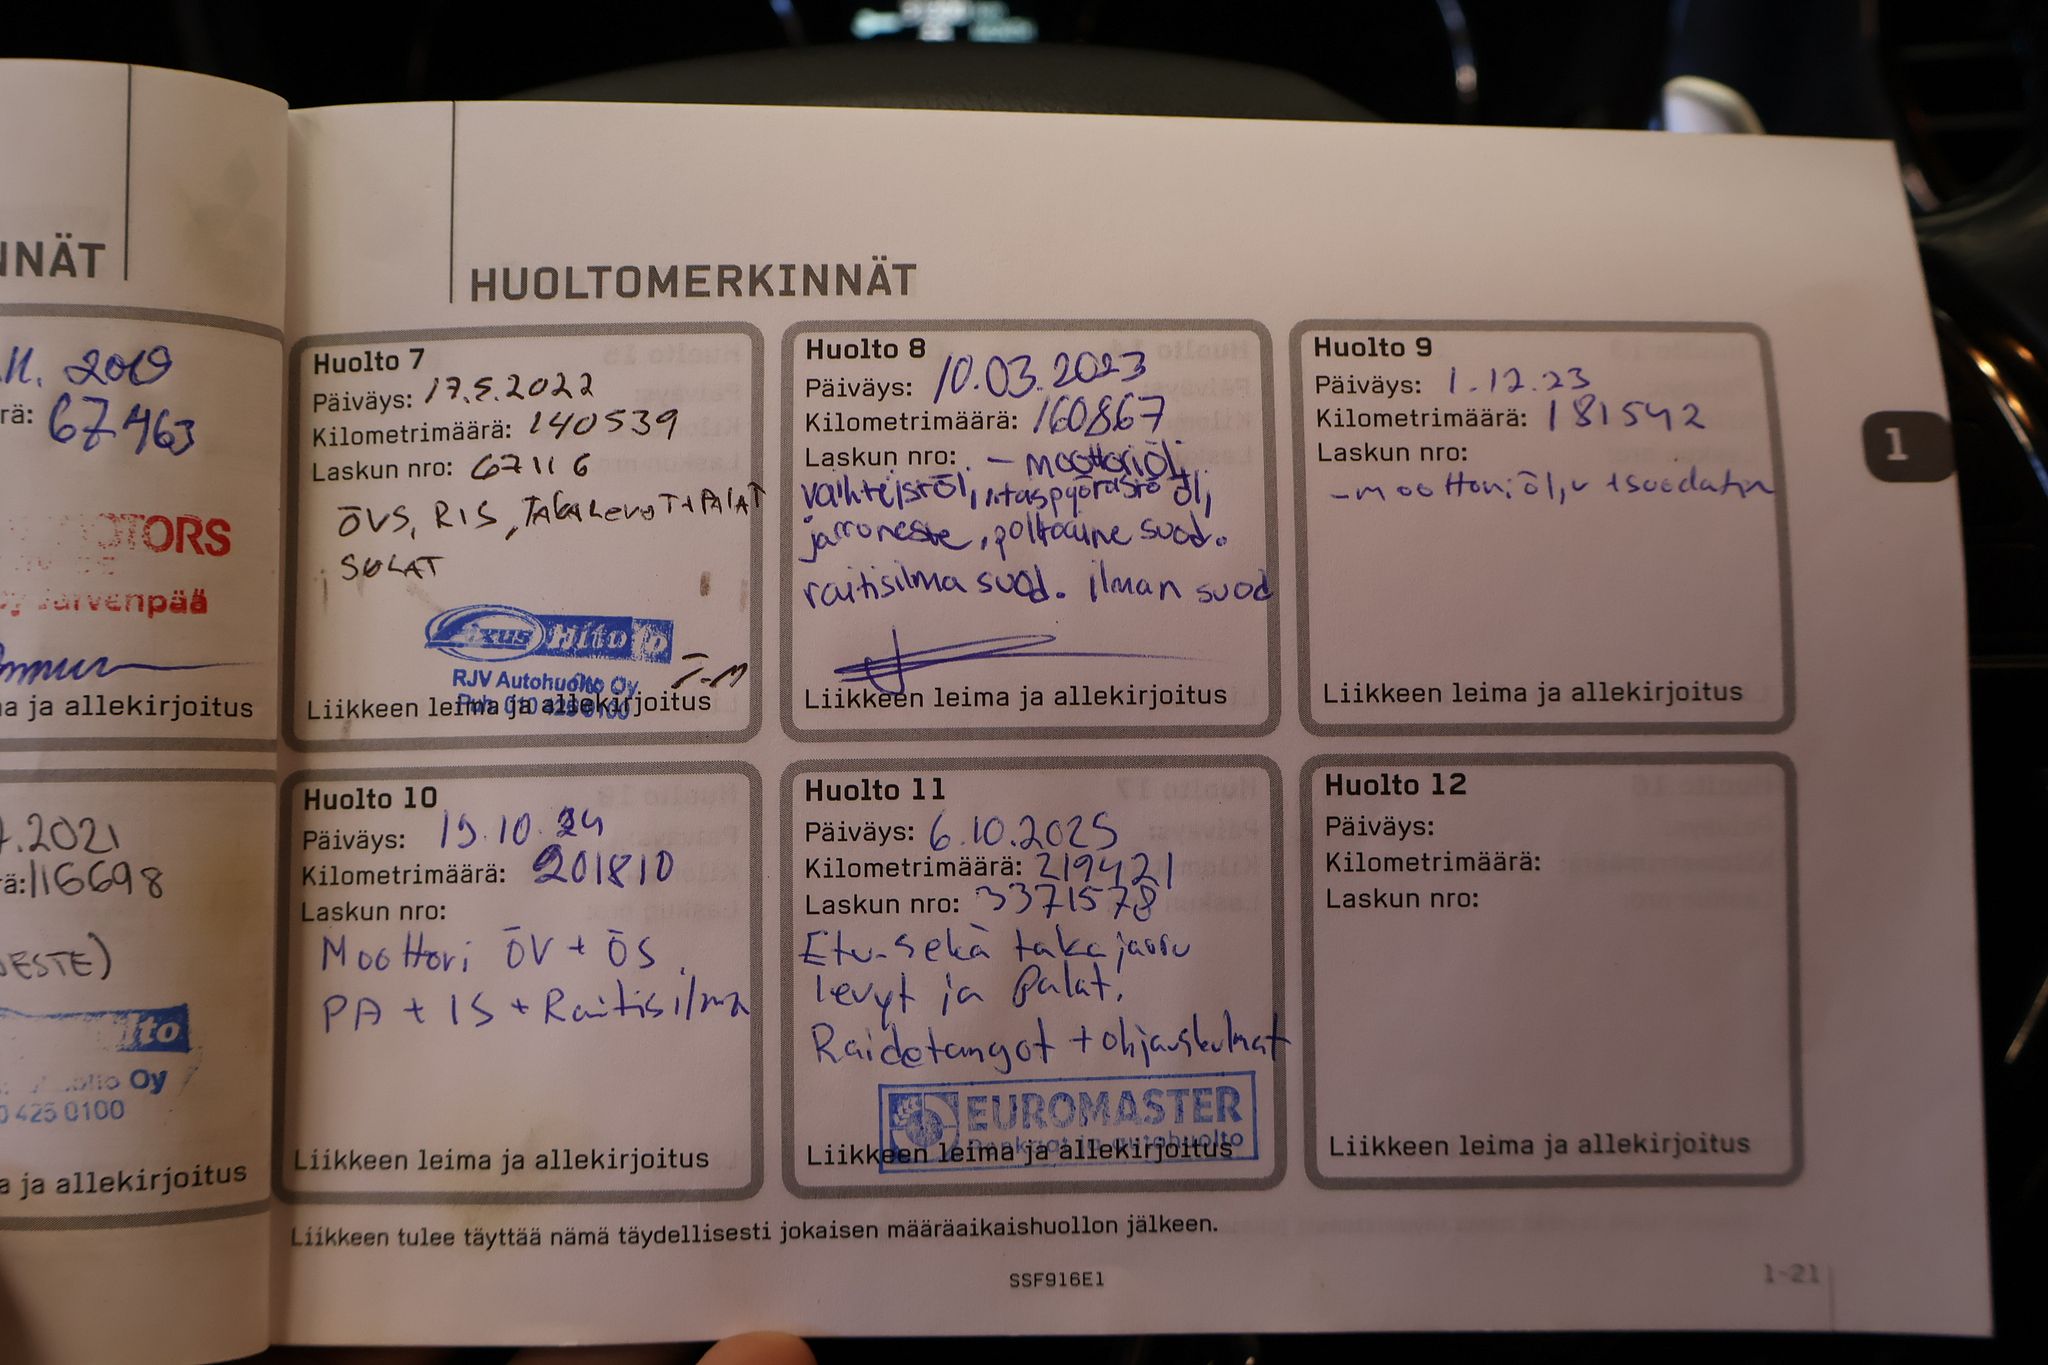 NNÄT
2019
rä: 67463
MOTORS
Järvenpää
a ja allekirjoitus
.2021
ä: 116698
ESTE)
Oy
0 425 0100
a ja allekirjoitus
HUOLTOMERKINNÄT
Huolto 7
Päiväys: 17.5.2022
Kilometrimäärä: 140539
Laskun nro: 67116
ÖVS, RIS, TAKALEVOT+PALAT
SULAT
RJV Autohuolto Oy
Puh. 010 425 0100
Liikkeen leima ja allekirjoitus
Huolto 8
Päiväys: 10.03.2023
Kilometrimäärä: 160867
Laskun nro: - moottoriölj,
vaihteistöl, hitaspyörästö öl,
jarroneste, polttoaine suod.
raitisilma suod. ilman suod
Liikkeen leima ja allekirjoitus
Huolto 9
Päiväys: 1.12.23
Kilometrimäärä: 181542
Laskun nro:
- moottoriöljy + suodatin
Liikkeen leima ja allekirjoitus
1
Huolto 10
Päiväys: 15.10.24
Kilometrimäärä: 201810
Laskun nro:
Moottori ÖV + ÖS,
PA + IS + Raitisilma
Liikkeen leima ja allekirjoitus
Huolto 11
Päiväys: 6.10.2025
Kilometrimäärä: 219421
Laskun nro: 3371578
Etu- sekä takajarru
levyt ja Palat.
Raidetangot + ohjauskulmat
EUROMASTER
Renkaat ja autohuolto
Liikkeen leima ja allekirjoitus
Huolto 12
Päiväys:
Kilometrimäärä:
Laskun nro:
Liikkeen leima ja allekirjoitus
Liikkeen tulee täyttää nämä täydellisesti jokaisen määräaikaishuollon jälkeen.
SSF916E1
1-21